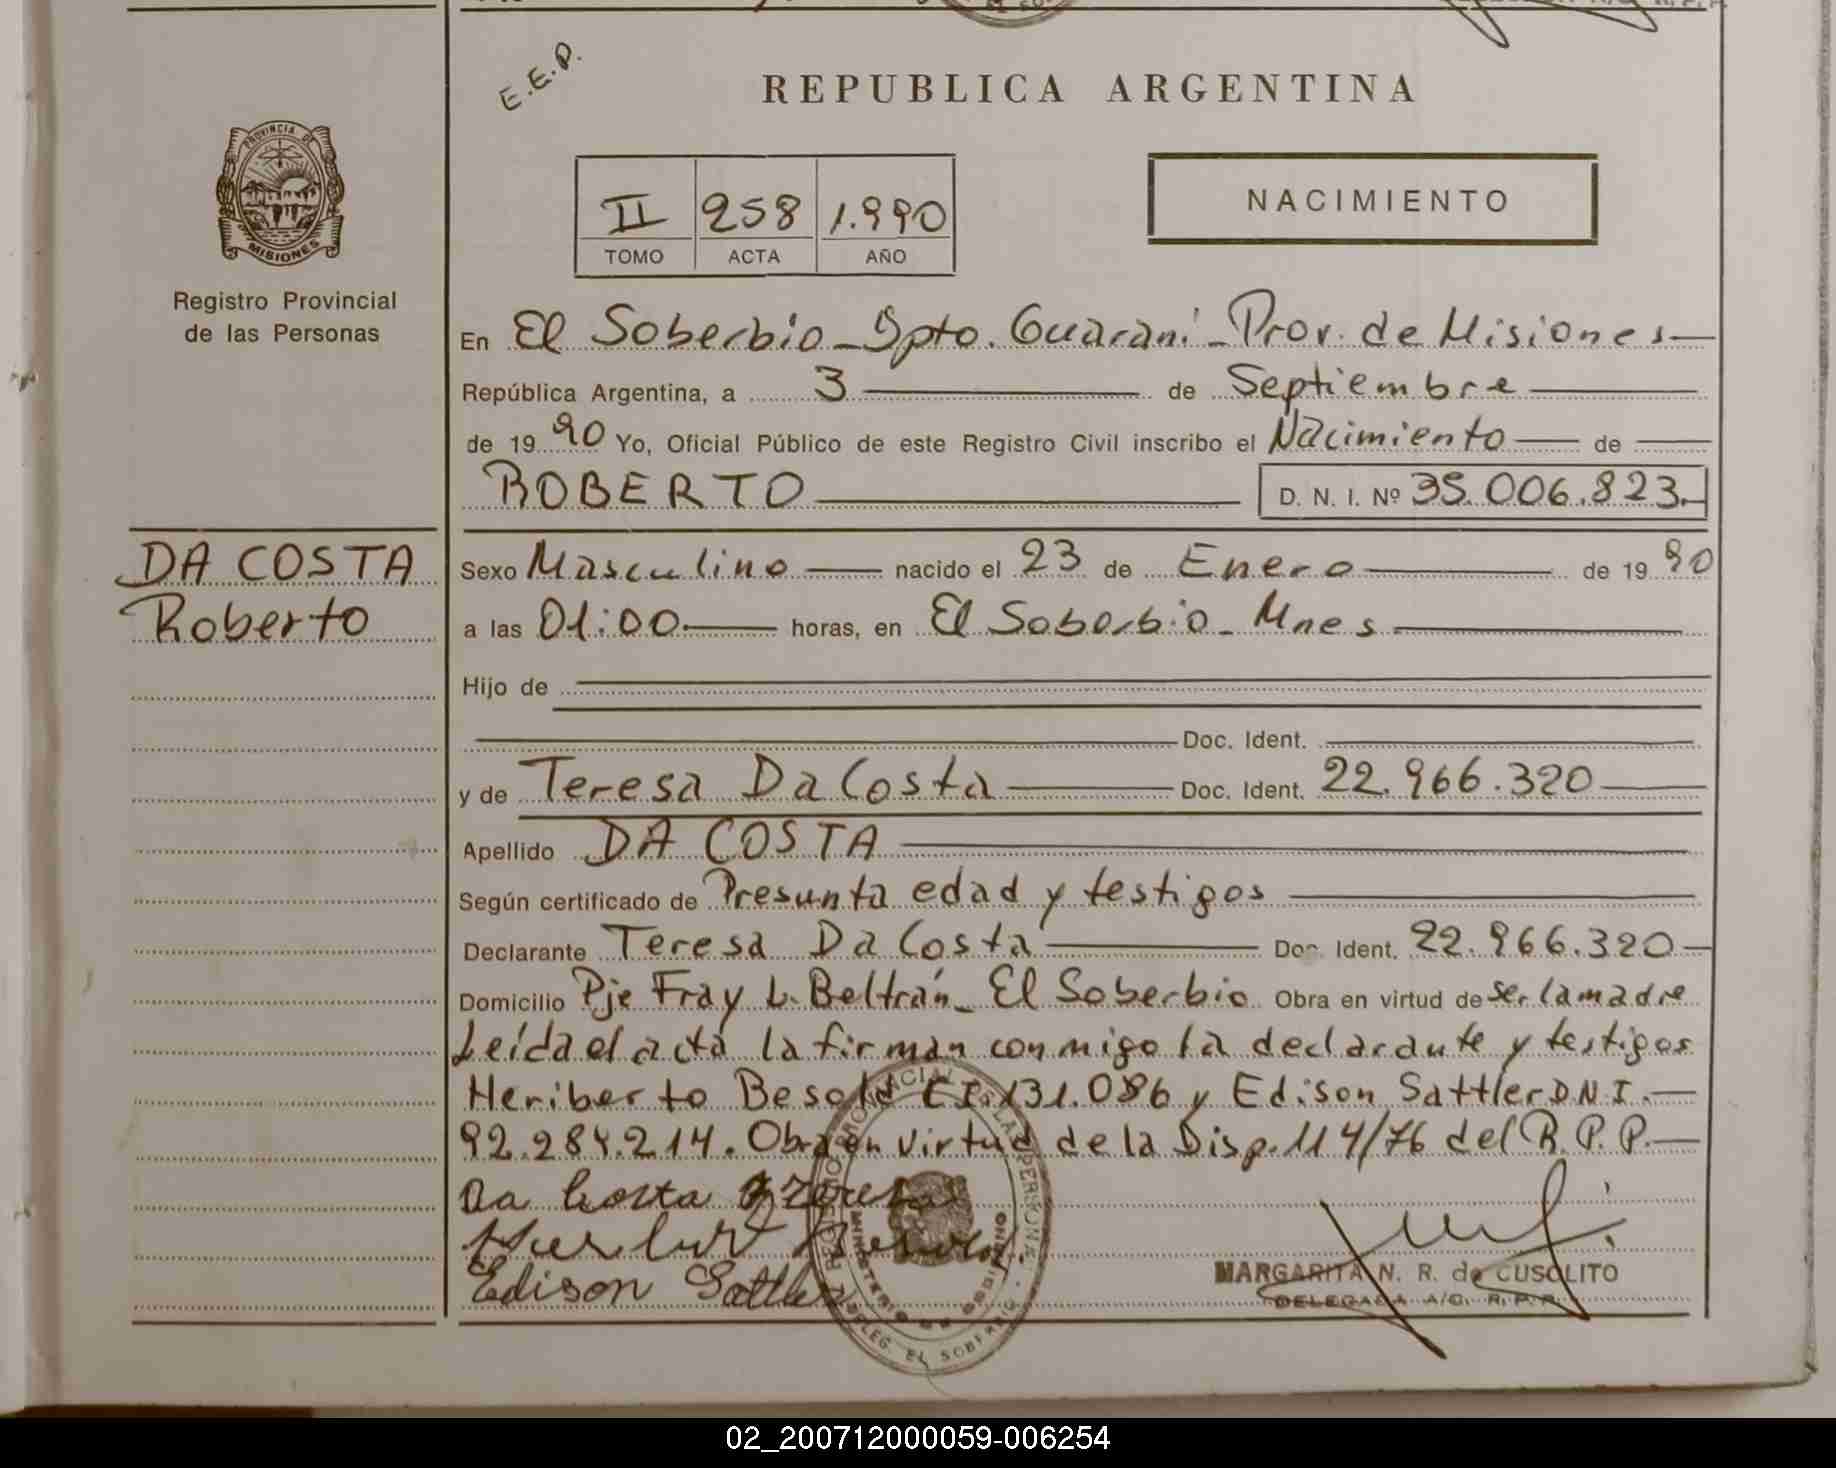 E.E.P.
REPUBLICA ARGENTINA
PROVINCIA DE
MISIONES
Registro Provincial
de las Personas
II 258 1.990
TOMO ACTA AÑO
NACIMIENTO
En El Soberbio - Dpto. Guaraní - Prov. de Misiones
República Argentina, a 3 de Septiembre
de 19 90 Yo, Oficial Público de este Registro Civil inscribo el Nacimiento de
ROBERTO D. N. I. Nº 35.006.823.
DA COSTA
Roberto
Sexo Masculino nacido el 23 de Enero de 19 90
a las 01:00 horas, en El Soberbio - Mnes
Hijo de
Doc. Ident.
y de Teresa Da Costa Doc. Ident. 22.966.320
Apellido DA COSTA
Según certificado de Presunta edad y testigos
Declarante Teresa Da Costa Doc. Ident. 22.966.320
Domicilio Pje Fray L. Beltrán - El Soberbio Obra en virtud de ser la madre
Leída el acta la firman conmigo la declarante y testigos
Heriberto Besold CI.131.086 y Edison Sattler D.N.I.
92.284.214. Obra en virtud de la Disp. 114/76 del R.P.P.
Da Costa Tereza
Edison Sattler
MARGARITA N. R. de CUSOLITO
DELEGADA A/C. R.P.P.
DELEG. EL SOBERBIO
02_200712000059-006254